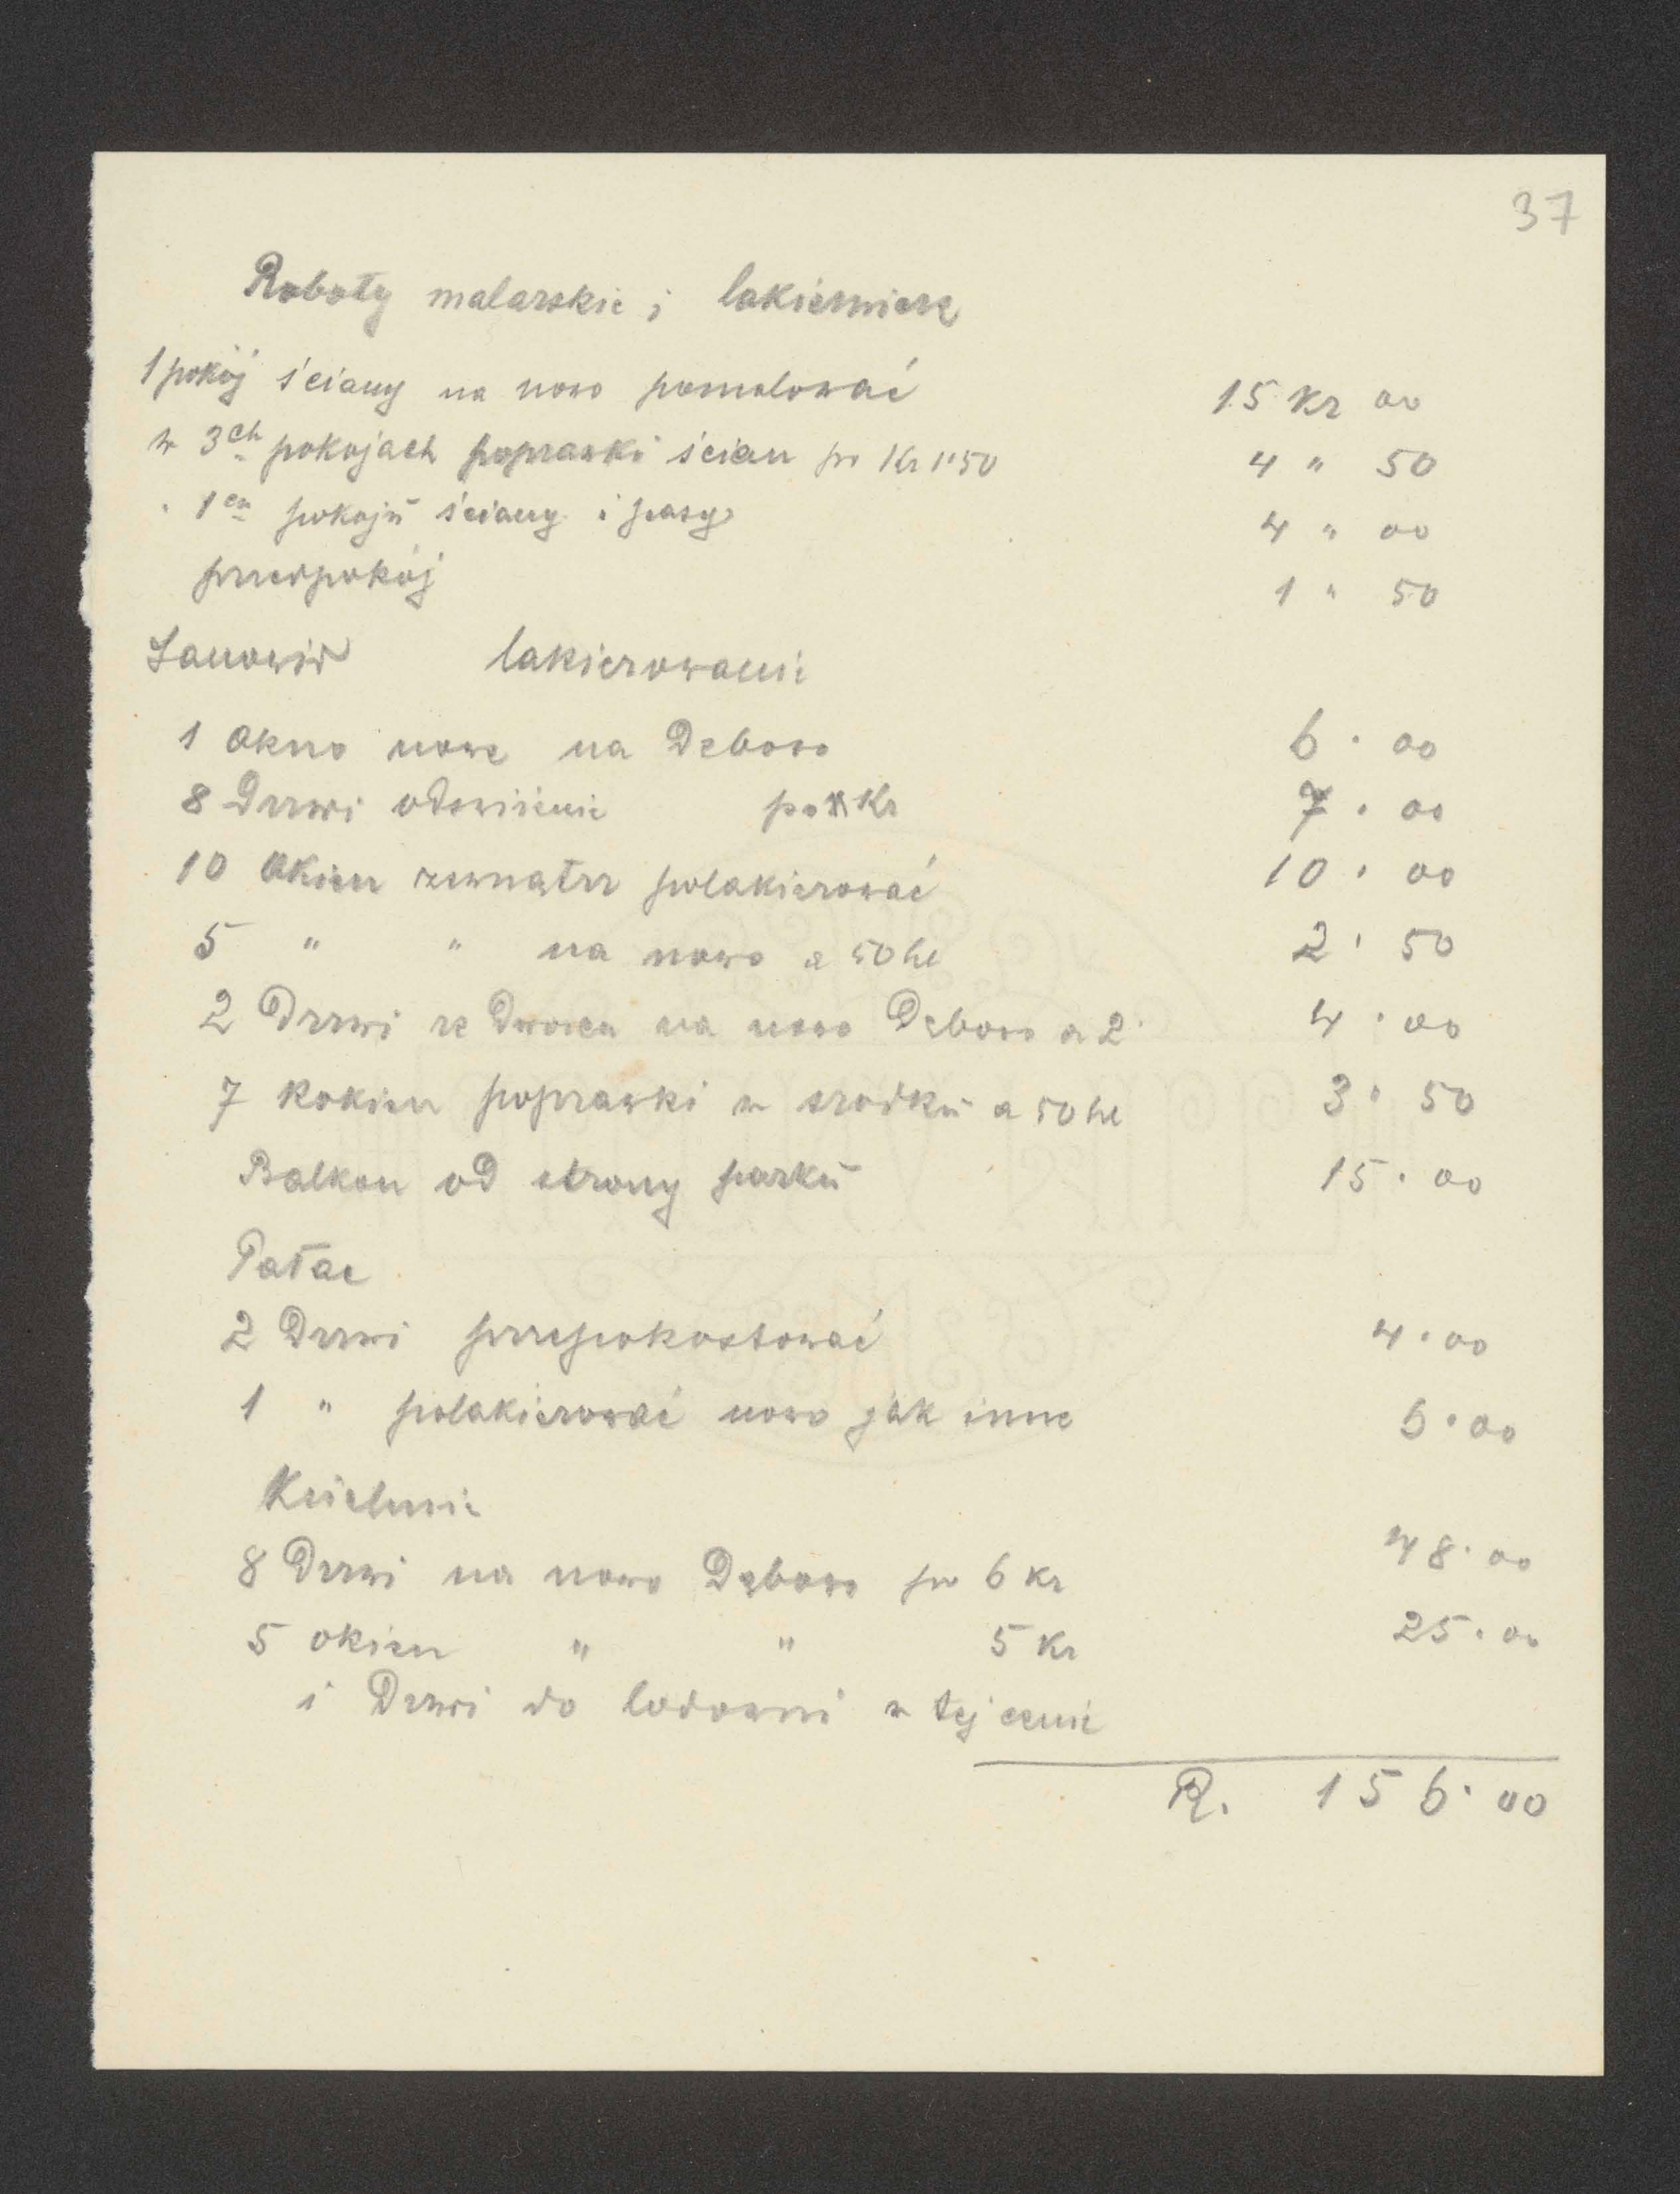 37
Roboty malarskie i lakiernicze
1 pokój ściany na nowo pomalować 15 Kr 00
w 3ch pokojach poprawki ścian po Kr 1·50 4 " 50
" 1en pokoju ściany i pasy 4 " 00
przedpokój 1 " 50
lakierowanie
1 okno nowe na Debowo 6 · 00
8 Drzwi odswiżenie po Kr 7 · 00
10 Okien zewnątrz polakierować 10 · 00
5 " " na nowo a 50 hl 2 · 50
2 Drzwi ze na nowo Dębowo a 2· 4 · 00
7 okien poprawki w srodku a 50 hl 3 · 50
Balkon od strony parku 15 · 00
Pałac
2 Drzwi przepokostować 4 · 00
1 " polakierować nowo jak inne 5 · 00
Kuchnie
8 Drzwi na nowo Dębowo po 6 Kr 48 · 00
5 okien " " 5 Kr 25 · 00
i Drzwi do lodowni w tej cenie
R. 156 · 00